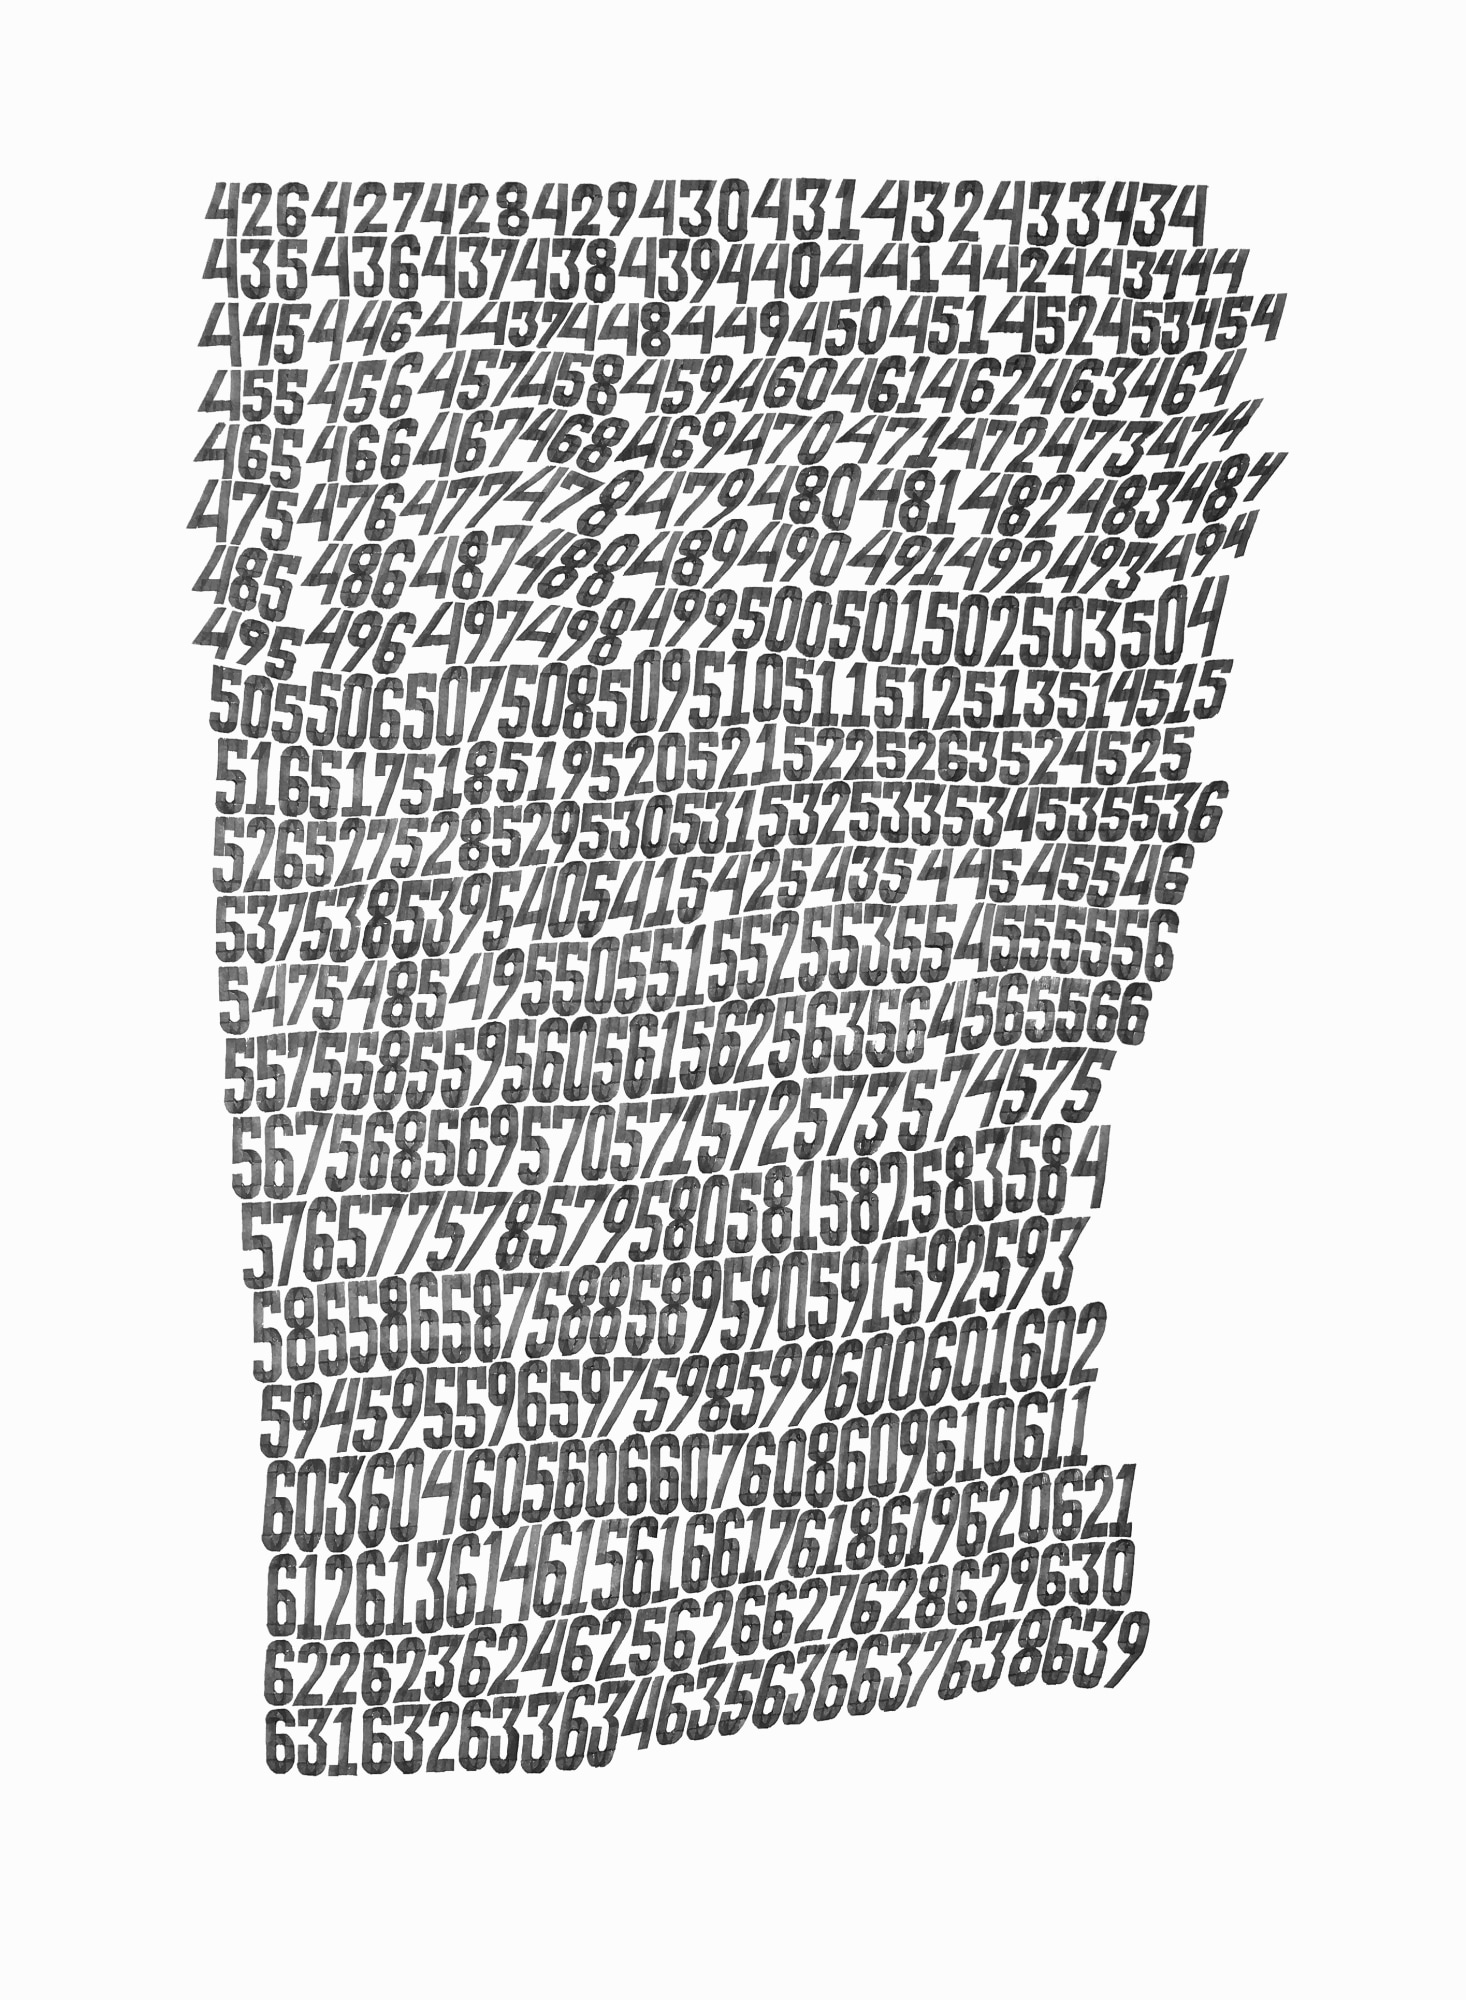 426427428429430431432433434
435436437438439440441442443444
4454464437448449450451452453454
455456457458459460461462463464
465466467468469470471472473474
475476477478479480481482483484
485486487488489490491492493494
495496497498499500501502503504
505506507508509510511512513514515
5165175185195205215225263524525
526527528529530531532533534535536
537538539540541542543544545546
547548549550551552553554555556
557558559560561562563564565566
567568569570571572573574575
576577578579580581582583584
585586587588589590591592593
594595596597598599600601602
603604605606607608609610611
612613614615616617618619620621
622623624625626627628629630
631632633634635636637638639